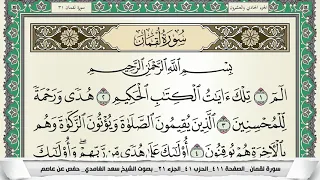 الجزء الحادي والعشرون
سورة لقمان ٣١
سُورَةُ لُقْمَانَ
بِسْمِ ٱللَّهِ ٱلرَّحْمَٰنِ ٱلرَّحِيمِ
الٓمٓ ١ تِلْكَ ءَايَٰتُ ٱلْكِتَٰبِ ٱلْحَكِيمِ ٢ هُدًى وَرَحْمَةً
لِّلْمُحْسِنِينَ ٣ ٱلَّذِينَ يُقِيمُونَ ٱلصَّلَوٰةَ وَيُؤْتُونَ ٱلزَّكَوٰةَ وَهُم
بِٱلْأَخِرَةِ هُمْ يُوقِنُونَ ٤ أُوْلَٰٓئِكَ عَلَىٰ هُدًى مِّن رَّبِّهِمْ وَأُوْلَٰٓئِكَ
سورة لقمان _ الصفحة ٤١١ _ الحزب ٤١ _ الجزء ٢١ _ بصوت الشيخ سعد الغامدي _ حفص عن عاصم